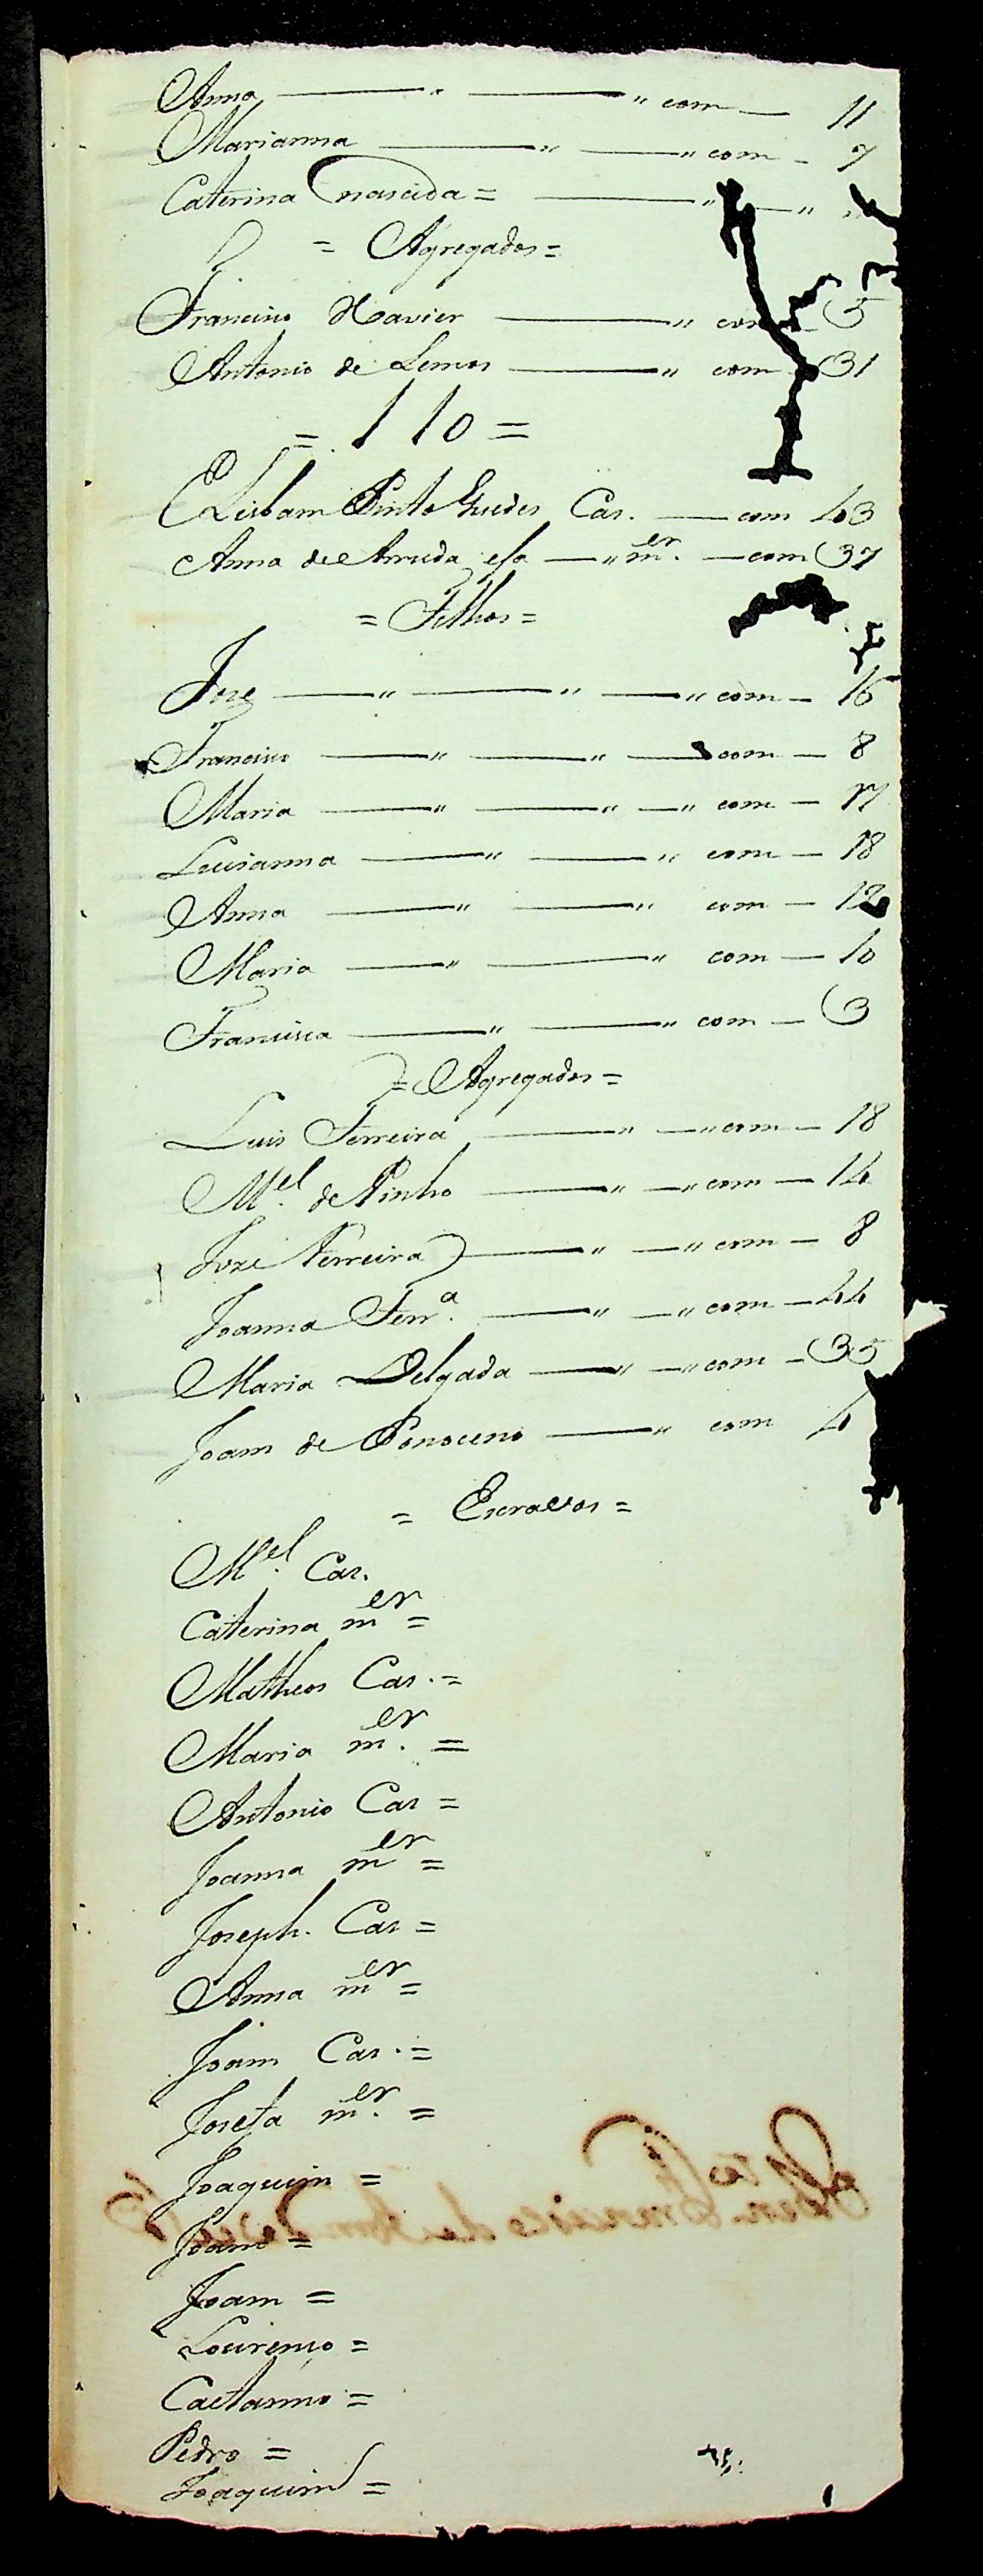 Anna ——— " ——— " com — 11
Marianna ——— " —— " com – 7
Caterina nascida = ——— " — "
= Agregados =
Francisco Xavier ——— " com – 5
Antonio de Lemos ——— " com 31
= 110 =
Lisbam Pinto Guedes Cas. — com 43
Anna de Arruda sa — " m.er — com 37
= Filhos =
Joze —— " —— " —— " com – 16
Francisco —— " —— " — com — 8
Maria —— " —— " — " com — 17
Lucianna —— " —— " com — 18
Anna —— " —— " com — 12
Maria —— " —— " com — 10
Francisca —— " —— " com — 3
= Agregados =
Luis Ferreira —— " — " com — 18
M.el de Pinho —— " — " com — 14
Joze Ferreira —— " — " com — 8
Joanna Ferr.a —— " — " com — 44
Maria Delgada —— " — " com – 35
Joam de —— " com 4
= Escravos =
M.el Cas.
Caterina m.er =
Matheos Cas. =
Maria m.er =
Antonio Cas =
Joanna m.er =
Joseph. Cas =
Anna m.er =
Joam Cas. =
Josefa m.er =
Joaquim =
Joam =
Joam =
Lourenço =
Caetanno =
Pedro =
Joaquim =